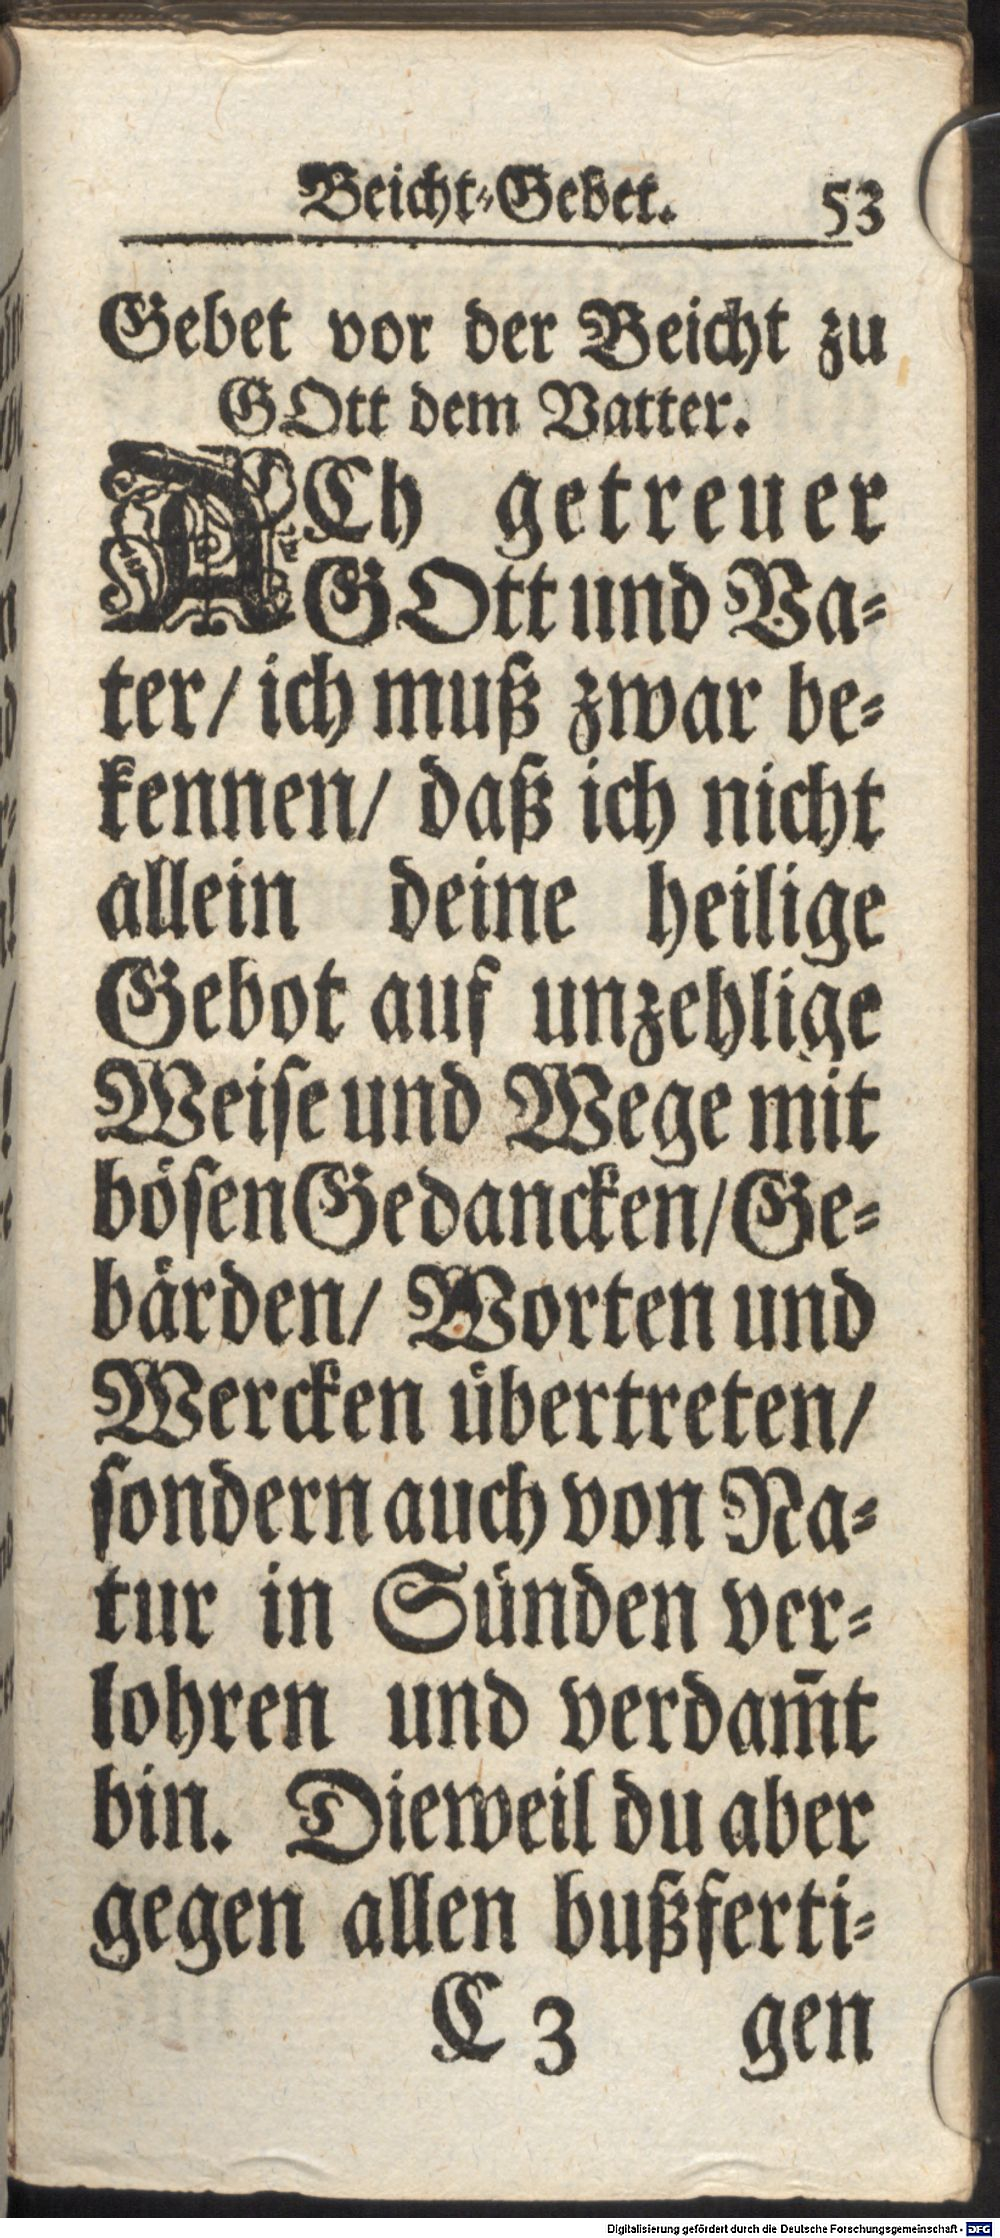 Beicht-Gebet. 53
Gebet vor der Beicht zu
GOtt dem Vatter.
ACh getreuer
GOtt und Va-
ter/ ich muß zwar be-
kennen/ daß ich nicht
allein deine heilige
Gebot auf unzehlige
Weise und Wege mit
bösen Gedancken/ Ge-
bärden/ Worten und
Wercken übertreten/
sondern auch von Na-
tur in Sünden ver-
lohren und verdam̄t
bin. Dieweil du aber
gegen allen bußferti-
C 3 gen
Digitalisierung gefördert durch die Deutsche Forschungsgemeinschaft - DFG